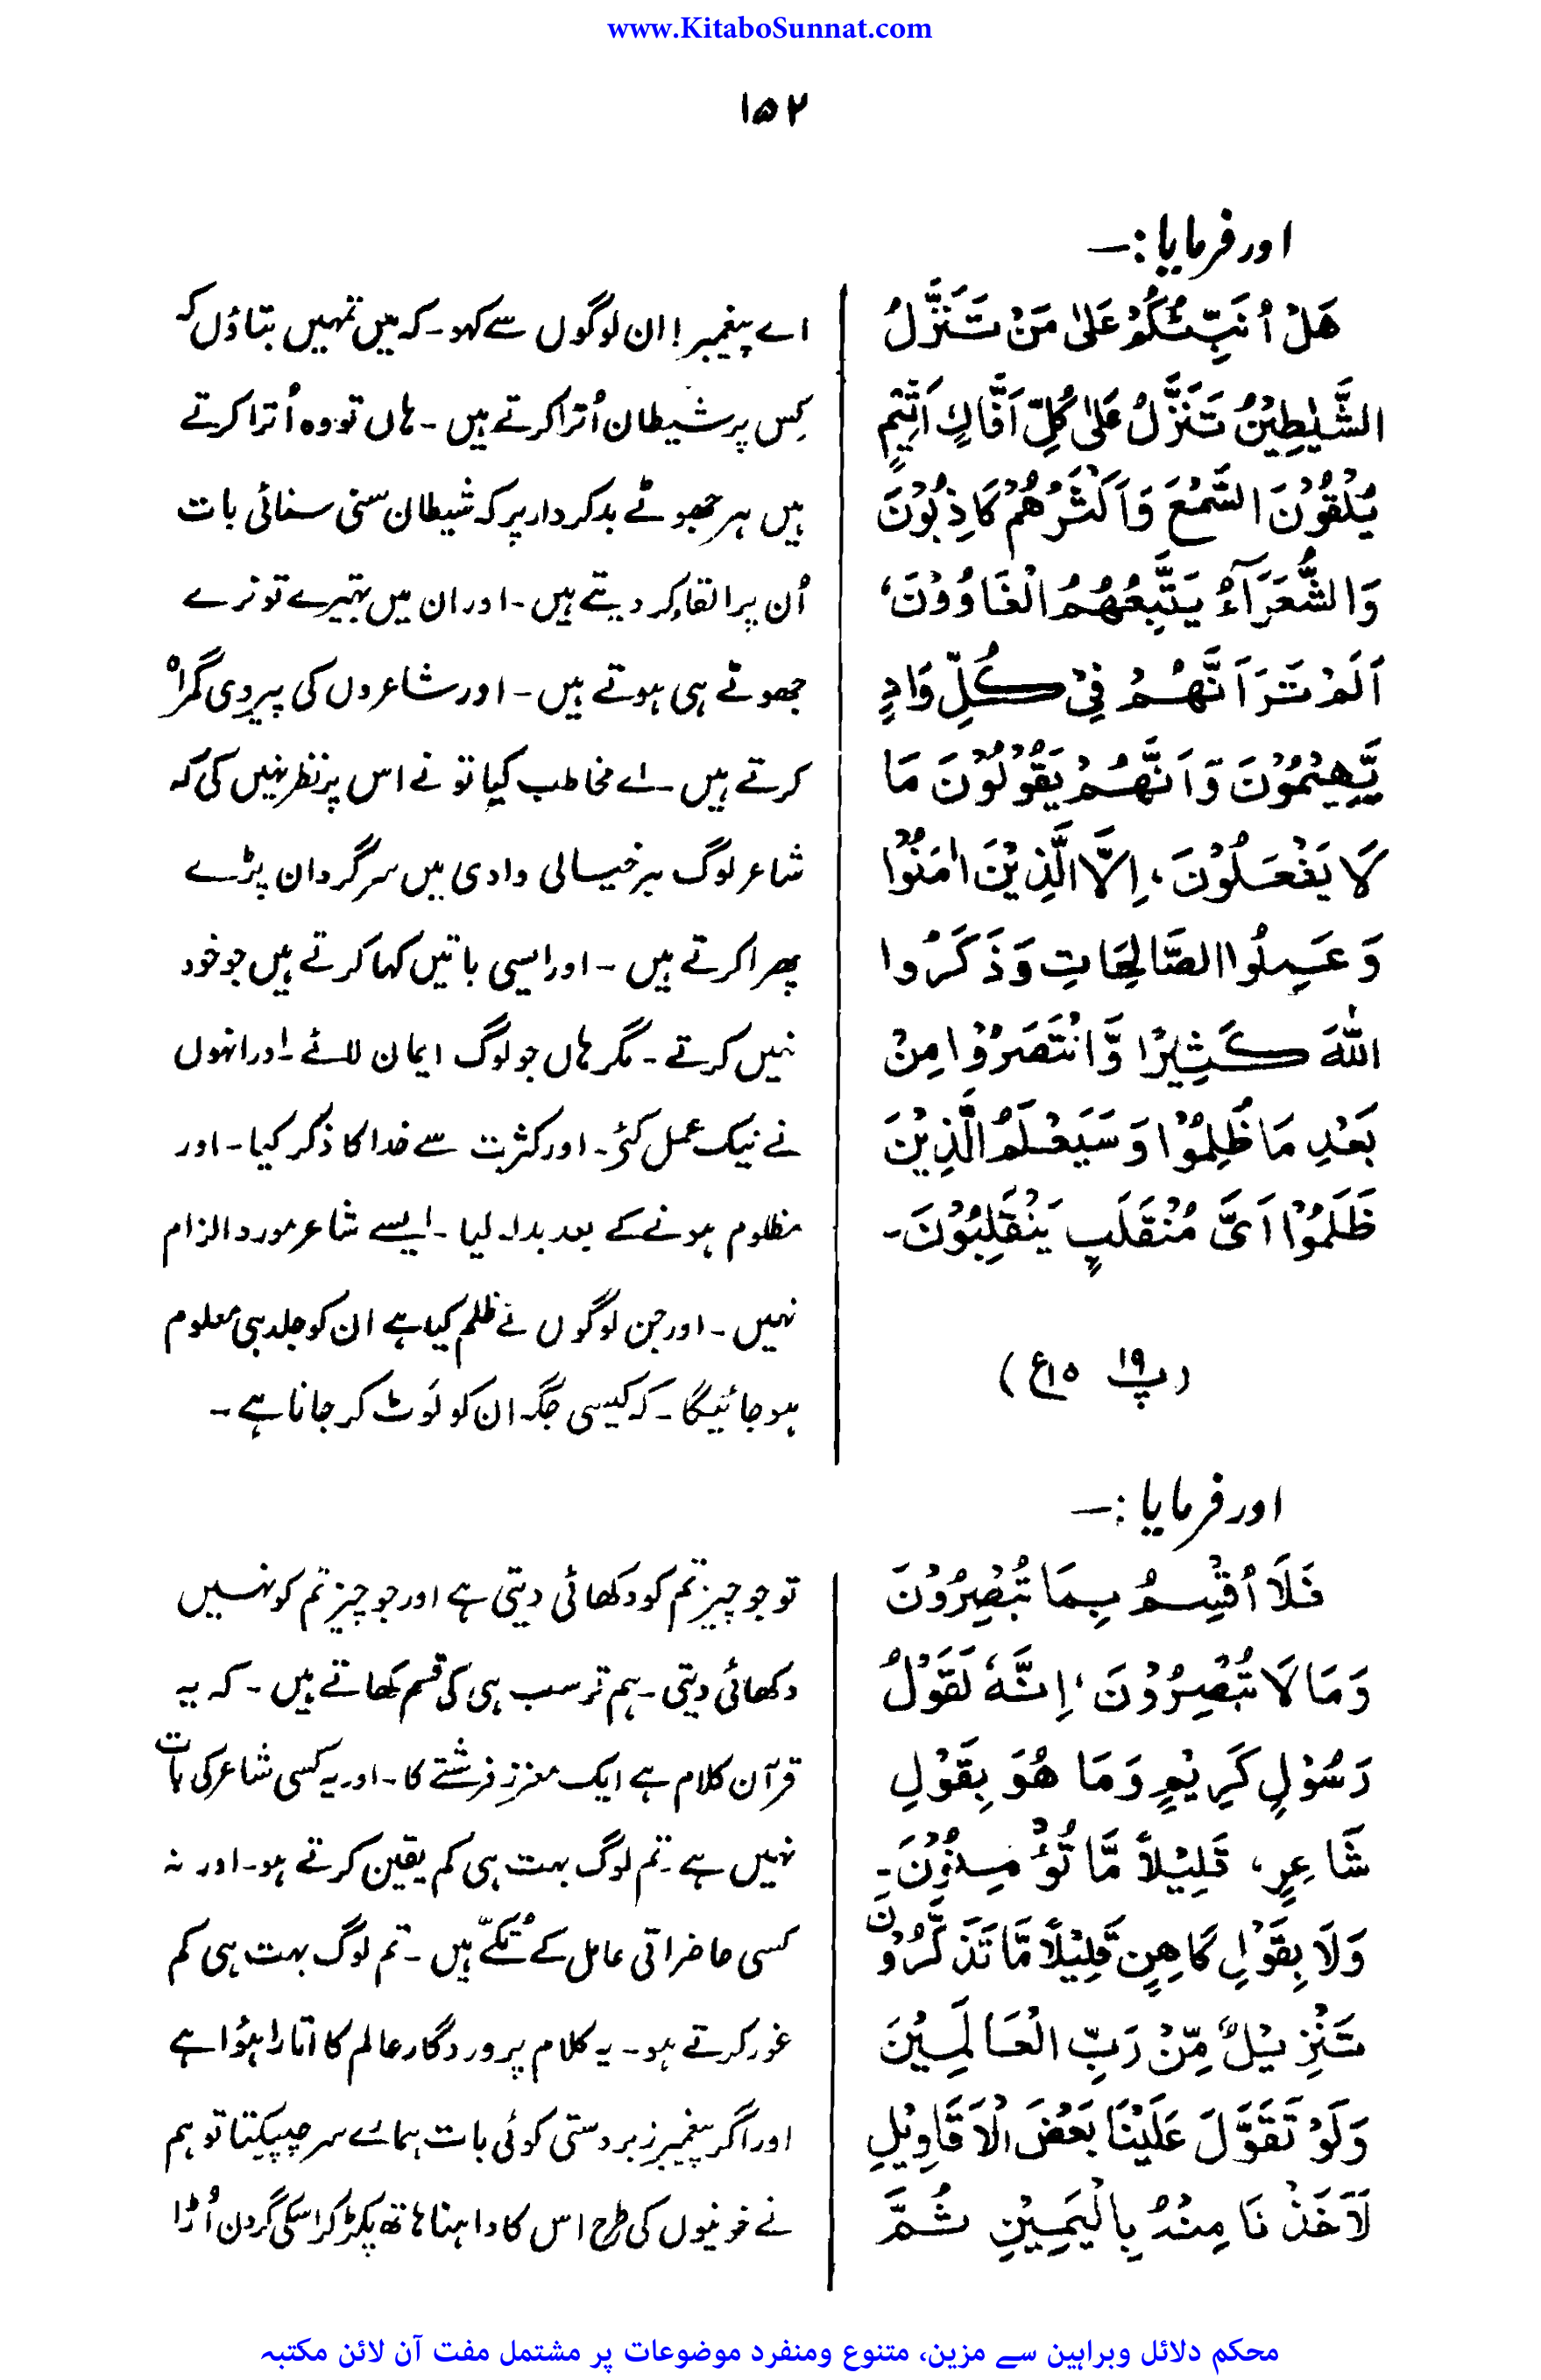 www.KitaboSunnat.com
۱۵۲
اور فرمایا :—
هَلْ اُنَبِّئُكُمْ عَلٰى مَنْ تَنَزَّلُ
الشَّيٰطِيْنُ تَنَزَّلُ عَلٰى كُلِّ اَفَّاكٍ اَثِيْمٍ
يُلْقُوْنَ السَّمْعَ وَاَكْثَرُهُمْ كَاذِبُوْنَ
وَالشُّعَرَآءُ يَتَّبِعُهُمُ الْغَاوُوْنَ،
اَلَمْ تَرَ اَنَّهُمْ فِيْ كُلِّ وَادٍ
يَّهِيْمُوْنَ وَاَنَّهُمْ يَقُوْلُوْنَ مَا
لَا يَفْعَلُوْنَ، اِلَّا الَّذِيْنَ اٰمَنُوْا
وَعَمِلُوا الصَّالِحَاتِ وَذَكَرُوا
اللّٰهَ كَثِيْرًا وَّانْتَصَرُوْا مِنْ
بَعْدِ مَا ظُلِمُوْا وَسَيَعْلَمُ الَّذِيْنَ
ظَلَمُوْا اَىَّ مُنْقَلَبٍ يَنْقَلِبُوْنَ۔
(پ ۱۹ ع ۱۵)
اے پیغمبر! ان لوگوں سے کہو۔ کہ میں تمہیں بتاؤں کہ
کِس پر شیطان اُترا کرتے ہیں ۔ ہاں تو وہ اُترا کرتے
ہیں ہر جھوٹے بدکردار پر کہ شیطان سنی سنائی بات
اُن پر القاء کر دیتے ہیں ۔ اور ان میں بتیرے تو نرے
جھوٹے ہی ہوتے ہیں ۔ اور شاعروں کی پیروی گمراہ
کرتے ہیں ۔ اے مخاطب کیا تو نے اس پر نظر نہیں کی کہ
شاعر لوگ ہر خیالی وادی میں سرگردان پڑے
پھرا کرتے ہیں ۔ اور ایسی باتیں کہا کرتے ہیں جو خود
نہیں کرتے ۔ مگر ہاں جو لوگ ایمان لائے ۔ اور انہوں
نے نیک عمل کئے ۔ اور کثرت سے خدا کا ذکر کیا ۔ اور
مظلوم ہونے کے بعد بدلہ لیا ۔ ایسے شاعر مورد الزام
نہیں ۔ اور جن لوگوں نے ظلم کیا ہے ان کو جلد ہی معلوم
ہو جائیگا ۔ کہ کیسی جگہ ان کو لَوٹ کر جانا ہے ۔
اور فرمایا :—
فَلَا اُقْسِمُ بِمَا تُبْصِرُوْنَ
وَمَا لَا تُبْصِرُوْنَ، اِنَّهٗ لَقَوْلُ
رَسُوْلٍ كَرِيْمٍ وَمَا هُوَ بِقَوْلِ
شَاعِرٍ، قَلِيْلًا مَّا تُؤْمِنُوْنَ۔
وَلَا بِقَوْلِ كَاهِنٍ قَلِيْلًا مَّا تَذَكَّرُوْنَ
تَنْزِيْلٌ مِّنْ رَبِّ الْعَالَمِيْنَ
وَلَوْ تَقَوَّلَ عَلَيْنَا بَعْضَ الْاَقَاوِيْلِ
لَاَخَذْنَا مِنْهُ بِالْيَمِيْنِ ثُمَّ
تو جو چیز تم کو دکھائی دیتی ہے اور جو چیز تم کو نہیں
دکھائی دیتی ۔ ہم تو سب ہی کی قسم کھاتے ہیں ۔ کہ یہ
قرآن کلام ہے ایک معزز فرشتے کا ۔ اور یہ کسی شاعر کی بات
نہیں ہے ۔ تم لوگ بہت ہی کم یقین کرتے ہو ۔ اور نہ
کسی حاضراتی عامل کے تُکّے ہیں ۔ تم لوگ بہت ہی کم
غور کرتے ہو ۔ یہ کلام پروردگار عالم کا اتارا ہؤا ہے
اور اگر پیغمبر زبردستی کوئی بات ہمارے سر چپیکتا تو ہم
نے خونیوں کی طرح اس کا داہنا ہاتھ پکڑ کر اسکی گردن اُڑا
محکم دلائل وبراہین سے مزین، متنوع ومنفرد موضوعات پر مشتمل مفت آن لائن مکتبہ